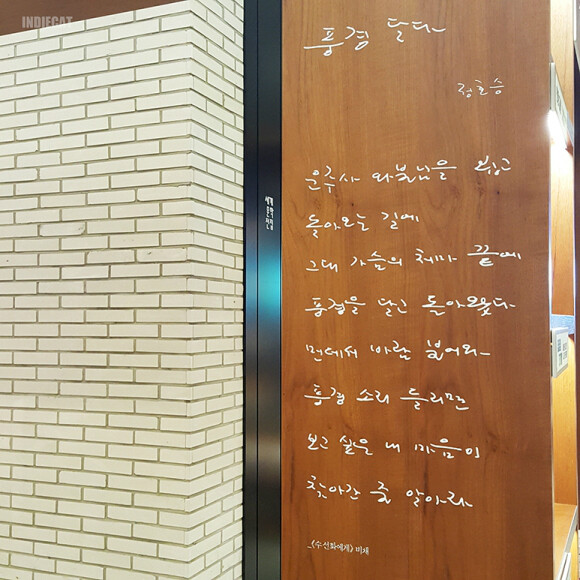 INDIECAT
풍경 달다
정호승
운주사 와불님을 뵙고
돌아오는 길에
그대 가슴의 처마 끝에
풍경을 달고 돌아왔다
먼데서 바람 불어와
풍경 소리 들리면
보고 싶은 내 마음이
찾아간 줄 알아라
_《수선화에게》 비채